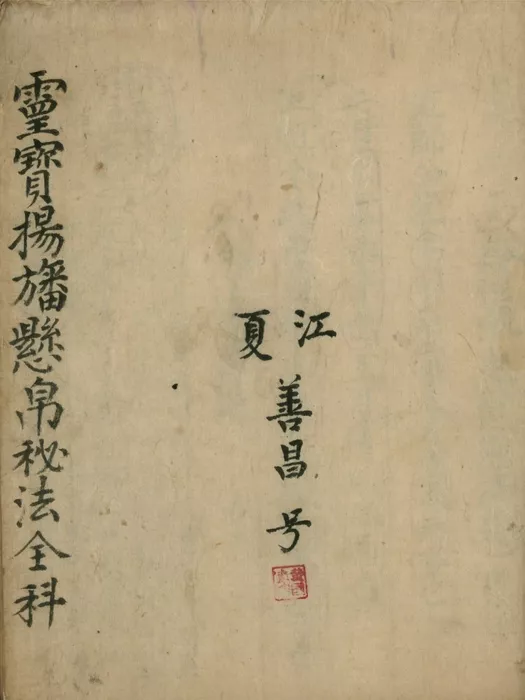 江夏
善昌号
靈寳揚旛懸帛秘法全科